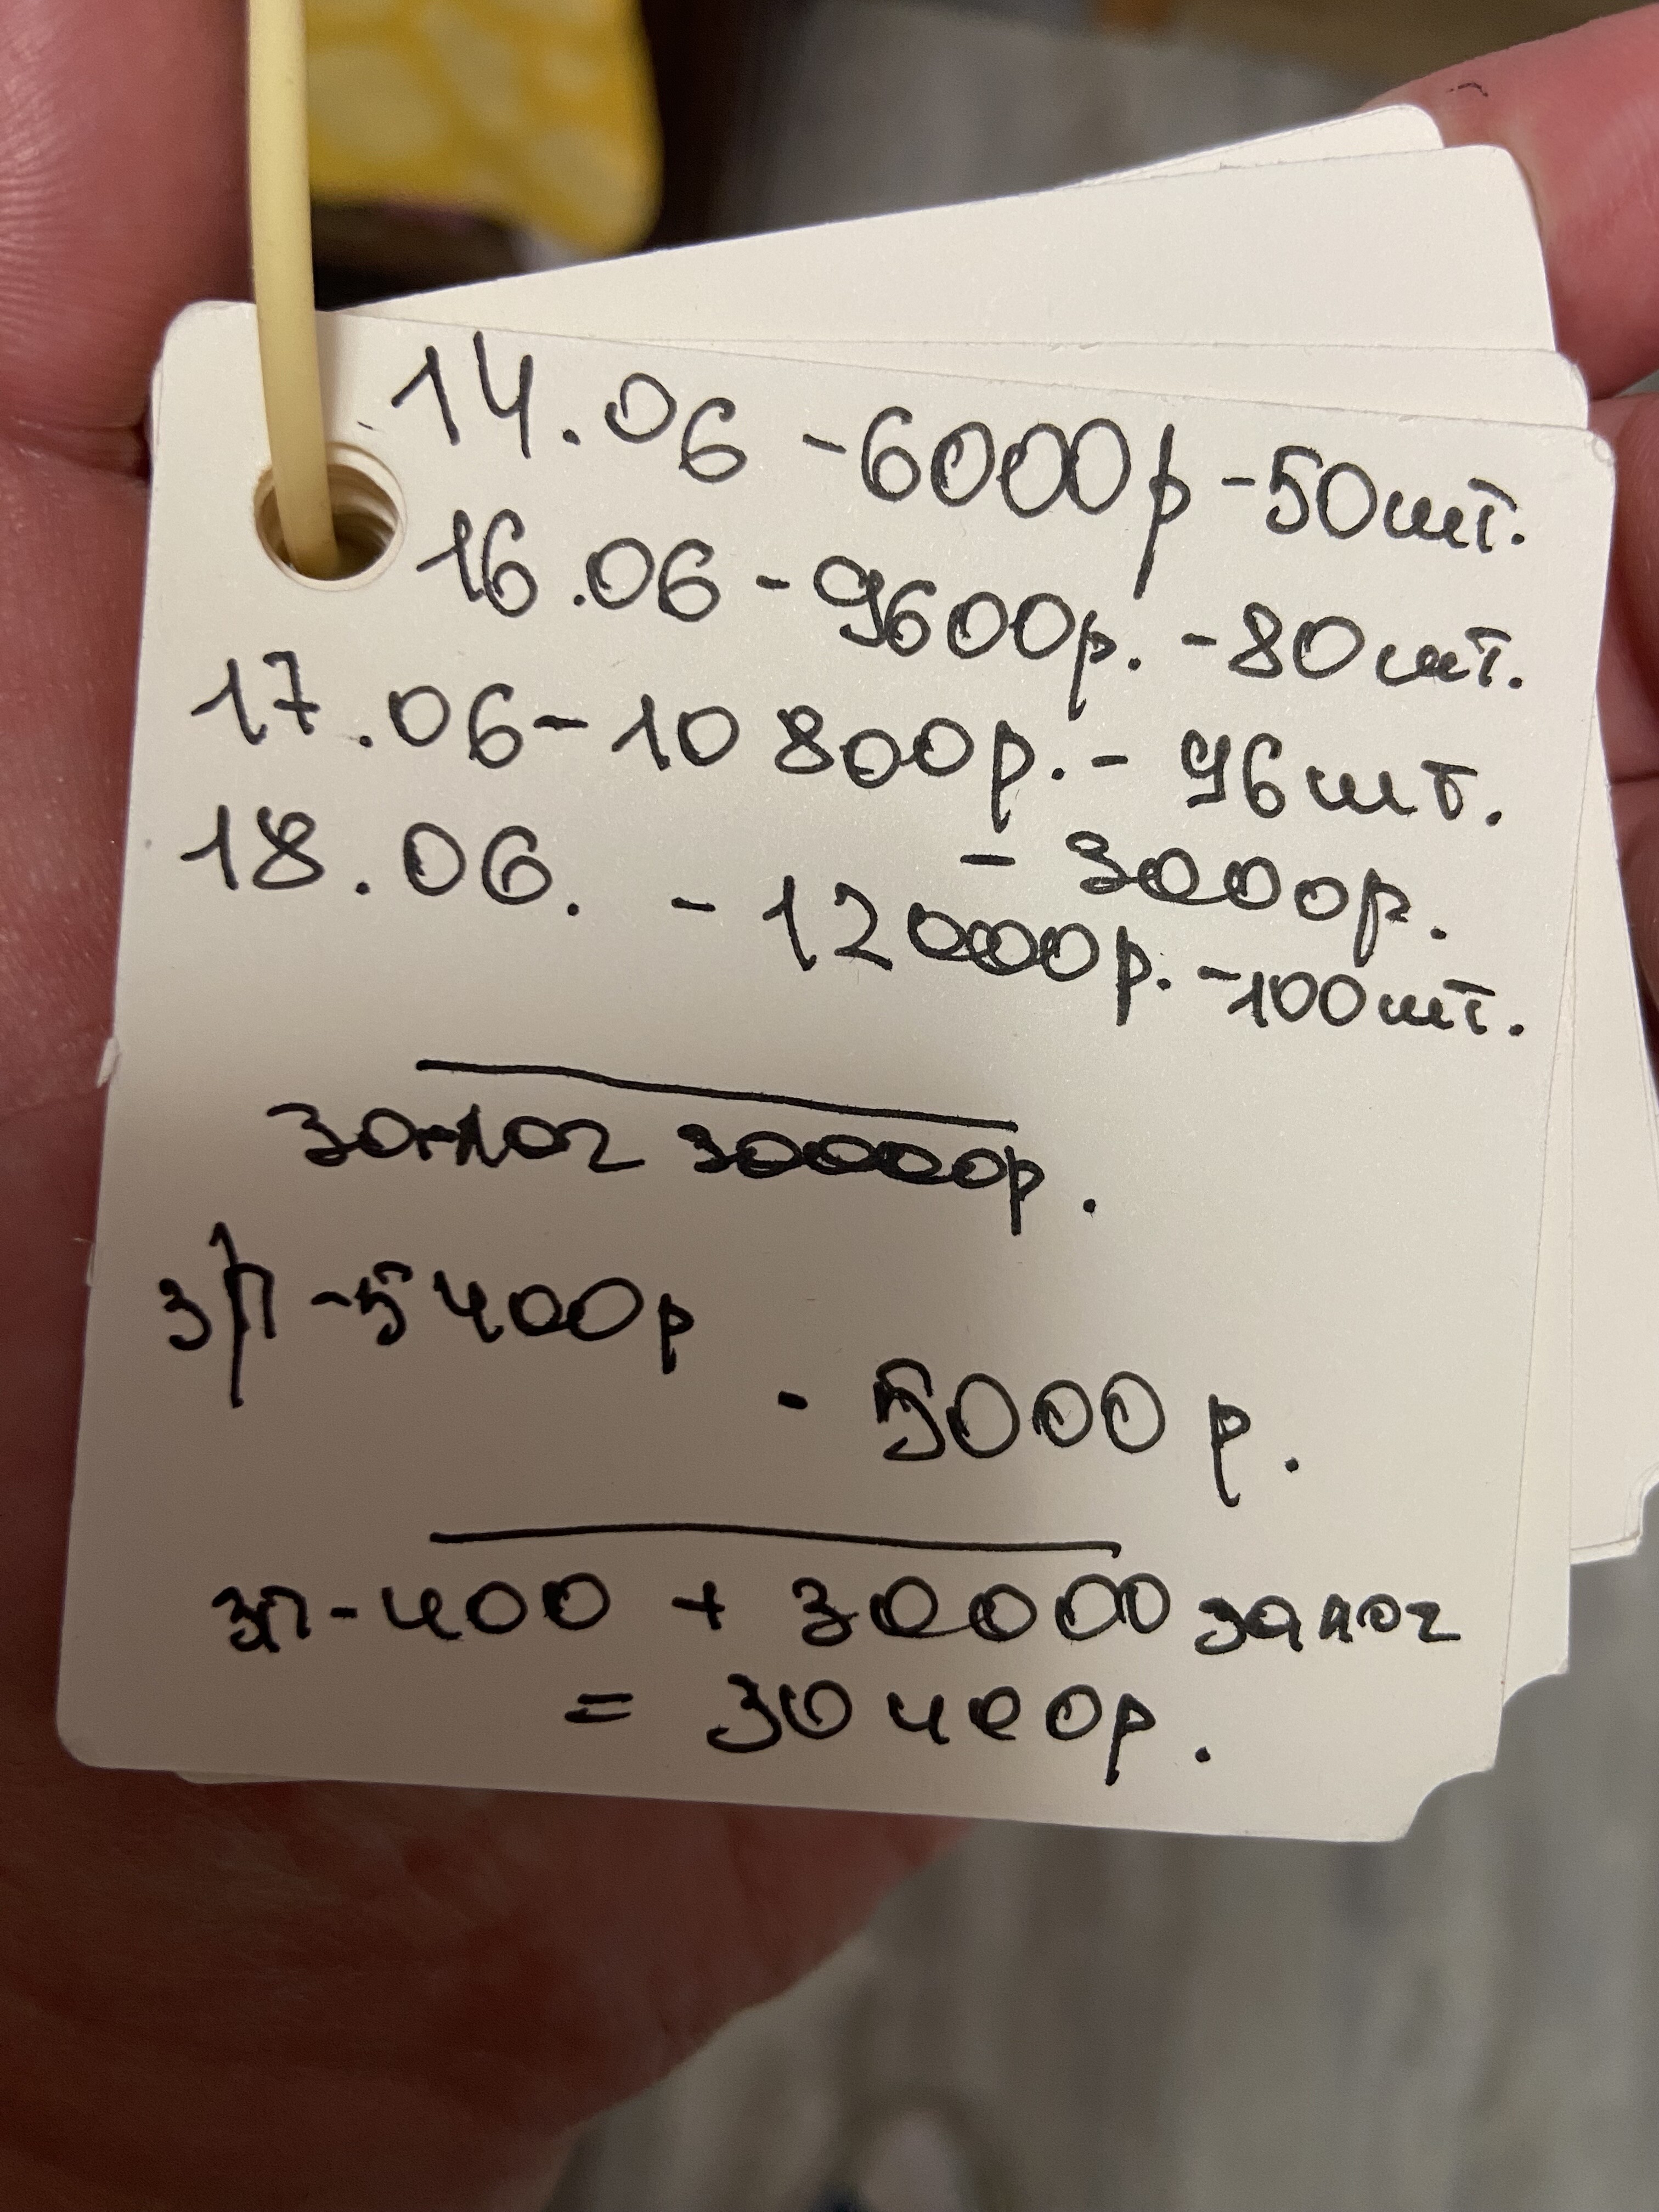 14.06 - 6000р - 50шт.
16.06 - 9600р. - 80шт.
17.06 - 10 800р. - 96шт.
18.06. - 3000р.
- 12000р. - 100шт.
залог 30000р.
з/п - 5400р
- 5000 р.
зп - 400 + 30000 залог
= 30400р.